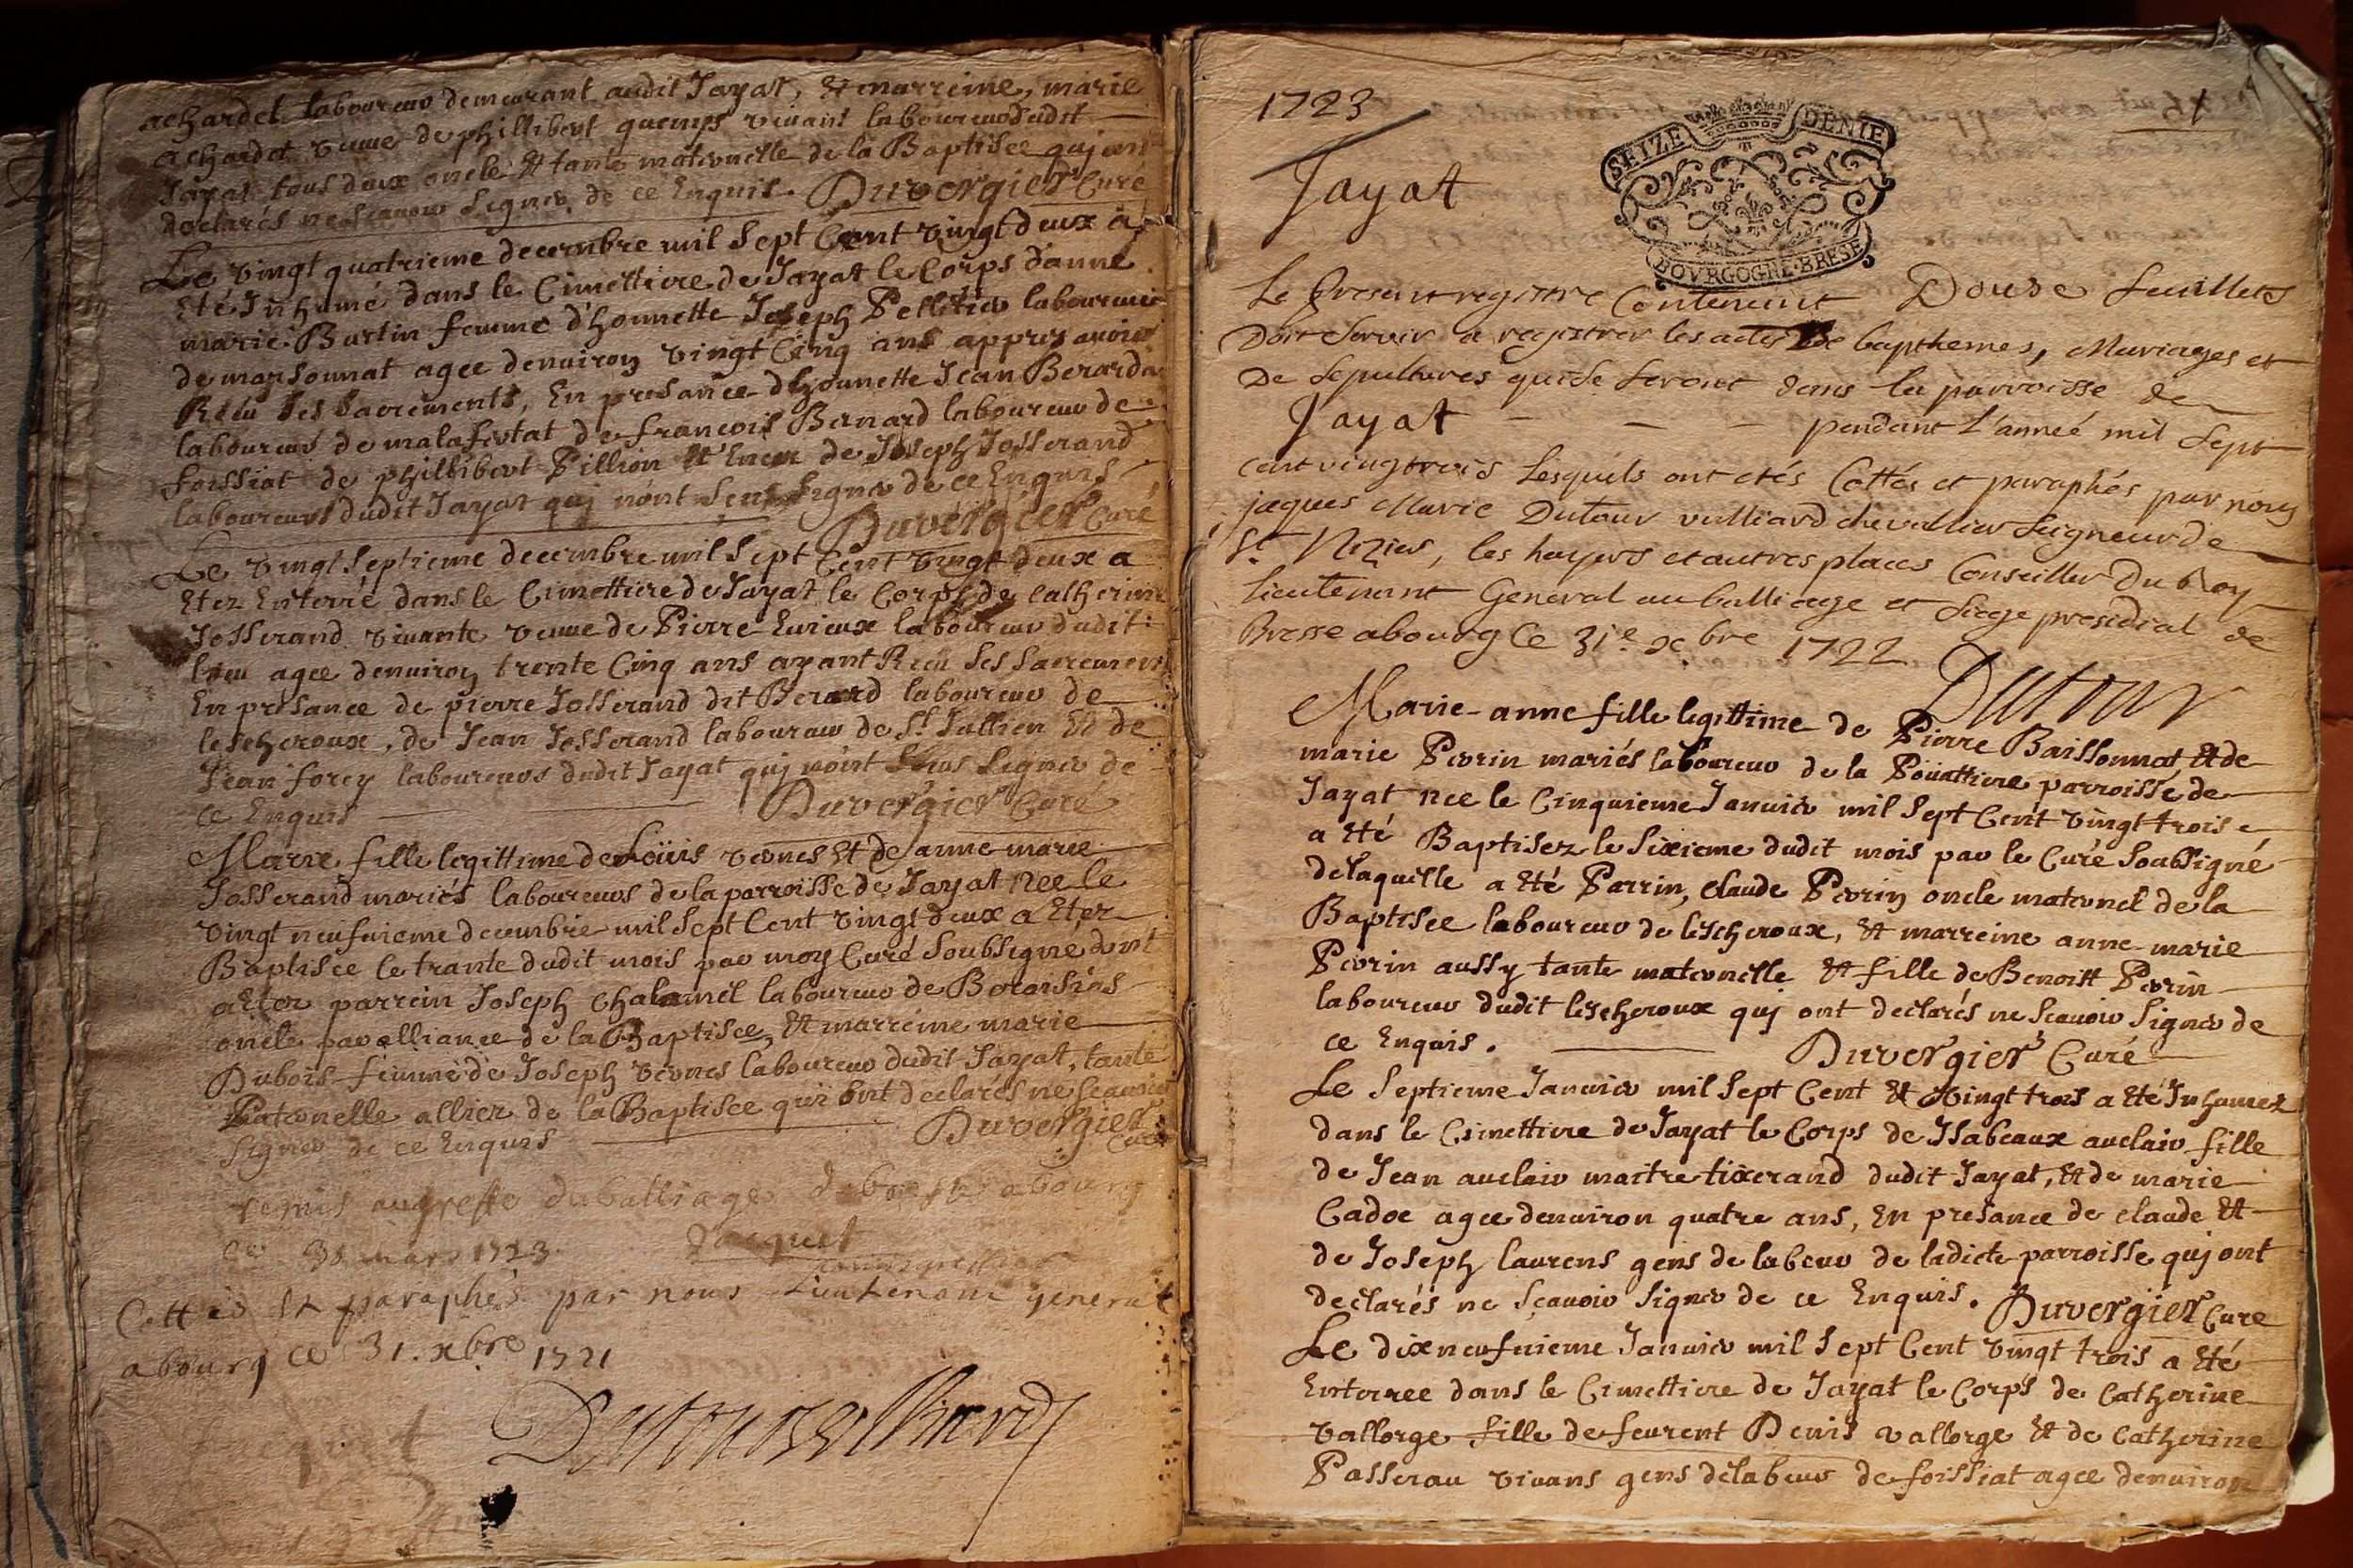 achardet laboureur demeurant audit Jayat, Et marreine, marie
achardet veuve de phillibert quemps vivant laboureur dudit
Jayat tous deux oncle Et tante maternelle de la Baptisee quj ont
declarés ne scavoir signer de ce Enquis. Duvergier Curé
Le vingt quatrieme decembre mil sept Cent vingt deux a
Eté Inhumé dans le Cimettiere de Jayat le Corps d'anne
marie Burtin femme d'honnette Joseph Pellitier laboureur
de marsonnat agee denuiron vingt Cinq ans appres avoir
Reeu ses sacrements, En presance d'honnette Jean Berard
laboureur de malafretat de francois Bernard laboureur de
foissiat de phillibert Pillion Et Encor de Joseph Josserand
laboureurs dudit Jayat quj n'ont sceu signer de ce Enquis
Duvergier Curé
Le vingt septieme decembre mil sept Cent vingt deux a
Etez Enterré dans le Cimettiere de Jayat le Corps de catherine
Josserand vivante veuve de Pierre Eurieux laboureur dudit
lieu agee denuiron trente Cinq ans ayant Reeu ses sacrements
En presance de pierre Josserand dit Berard laboureur de
lescheroux, de Jean Josserand laboureur de St Jullien Et de
Jean forey laboureurs dudit Jayat quj n'ont sceus signer de
ce Enquis Duvergier Curé
Marie fille legittime de Loüis vernes Et de anne marie
Josserand mariés laboureurs de la parroisse de Jayat Nee le
vingt neufuieme decembre mil sept Cent vingt deux a Etez
Baptisee le trante dudit mois par moy Curé soubsigné dont
a Etez parrein Joseph chalamel laboureur de
oncle par alliance de la Baptisee, Et marreine marie
Dubois femme de Joseph vernes laboureur dudit Jayat, tante
Paternelle alliez de la Baptisee qui ont declarés ne scauoir
signer de ce Enquis Duvergier Curé
remis au greffe du balliage de bresse a bourg
ce 31 mars 1723. Jacquet
Cottés Et paraphés par nous Lieutenant general
a bourg ce 31. xbre 1721
1723
SEIZE DENIE
BOVRGOGNE·BRESE
Jayat
Le present registre Contenant Douse feuillets
Doit servir a registrer les actes De bapthemes, Mariages et
De Sepultures qui se feront dans la parroisse de
Jayat - - - pendant l'anneé mil sept
cent vingt trois Lesquels ont etés Cottés et paraphés par nous
jacques Marie Dutour vulliard chevallier Seigneur de
St. Nizier, les hayers et autres places Conseiller Du Roy
Lieutenant General au balliage et Siege presidial de
Bresse a bourg Ce 31e. xbre 1722 Dutour
Marie-anne fille legittime de Pierre Baissonnat Et de
marie Perrin mariés laboureur de la Poüattiere parroisse de
Jayat nee le Cinquieme Januier mil sept Cent vingt trois
a Eté Baptisez le Sixieme dudit mois par le Curé Soubsigné
de laquelle a Eté Parrin, claude Perrin oncle maternel de la
Baptisee laboureur de lescheroux, Et marreine anne-marie
Perrin aussy tante maternelle Et fille de Benoitt Perrin
laboureur dudit lescheroux quj ont declarés ne scauoir signer de
ce Enquis. Duvergier Curé
Le Septieme Januier mil sept Cent Et vingt trois a Eté Inhumez
dans le Cimettiere de Jayat le Corps de Isabeaux auclair fille
de Jean auclair maitre tixerand dudit Jayat, Et de marie
Cadoe agee denuiron quatre ans, En presance de claude Et
de Joseph laurens gens de labeur de ladicte parroisse quj ont
declarés ne sçauoir signer de ce Enquis. Duvergier Cure
Le dixneufuieme Januier mil sept Cent vingt trois a Eté
Enterree dans le Cimettiere de Jayat le Corps de Catherine
vallorge fille de feurent Denis vallorge Et de Catherine
Passerau vivans gens de labeur de foissiat agee denuiron